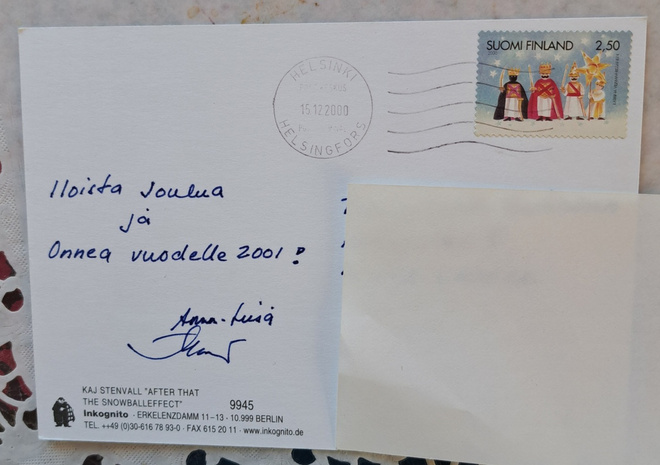 SUOMI FINLAND 2,50
HELSINKI
15.12.2000
HELSINGFORS
Iloista Joulua
ja
Onnea vuodelle 2001!
Anna-Liisa
KAJ STENVALL "AFTER THAT
THE SNOWBALLEFFECT" 9945
Inkognito · ERKELENZDAMM 11–13 · 10.999 BERLIN
TEL. ++49 (0)30-616 78 93-0 · FAX 615 20 11 · www.inkognito.de